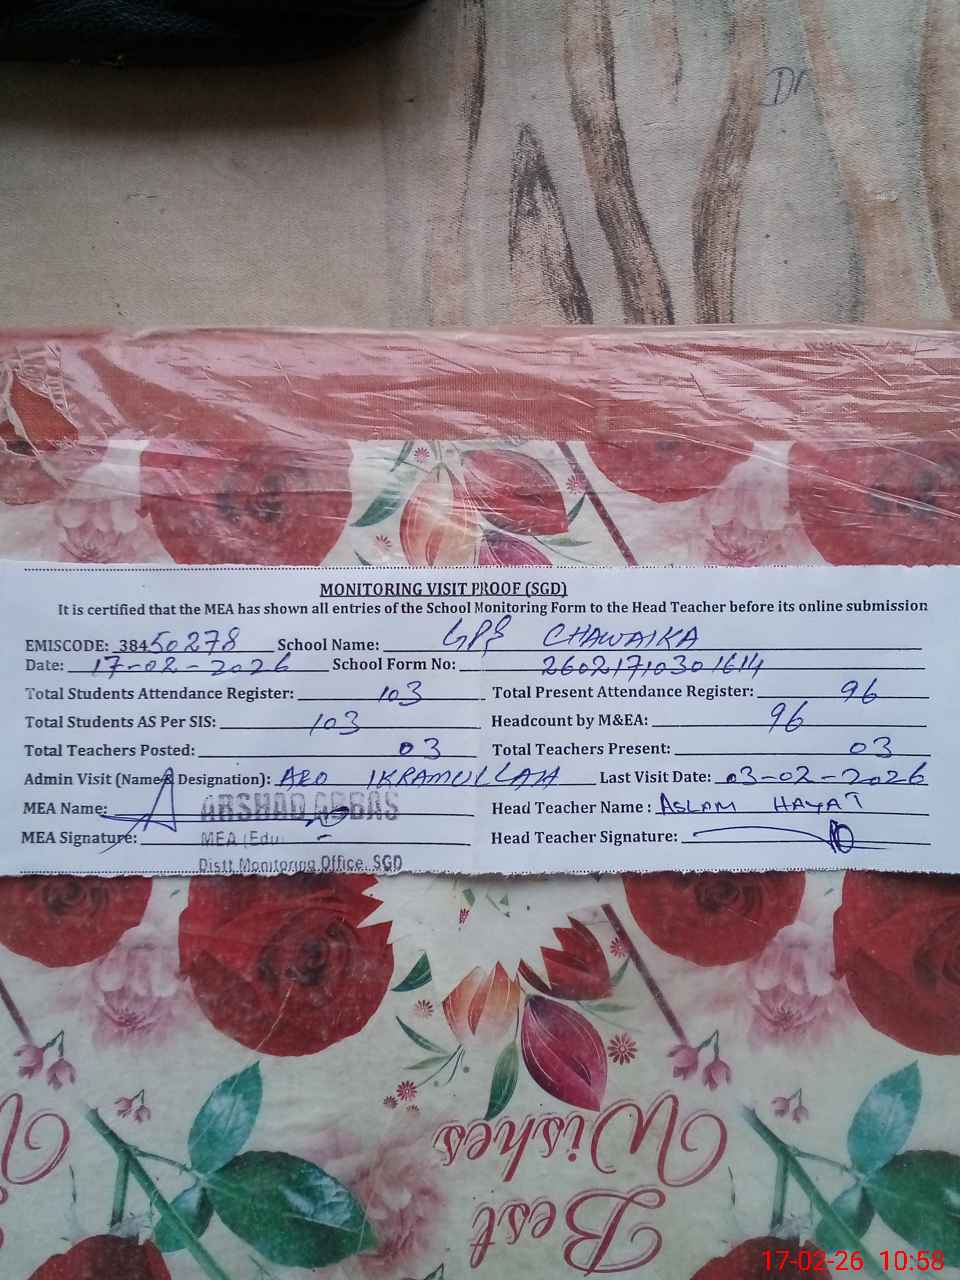 Dr
MONITORING VISIT PROOF (SGD)
It is certified that the MEA has shown all entries of the School Monitoring Form to the Head Teacher before its online submission
EMISCODE: 38450278 School Name: GPS CHAWAIKA
Date: 17-02-2026 School Form No: 26021710301614
Total Students Attendance Register: 103 Total Present Attendance Register: 96
Total Students AS Per SIS: 103 Headcount by M&EA: 96
Total Teachers Posted: 03 Total Teachers Present: 03
Admin Visit (Name & Designation): AEO IKRAMULLAH Last Visit Date: 03-02-2026
MEA Name: ARSHAD ABBAS Head Teacher Name: ASLAM HAYAT
MEA Signature: MEA (Edu) Head Teacher Signature:
Distt Monitoring Office, SGD
Wishes
Best
17-02-26 10:58